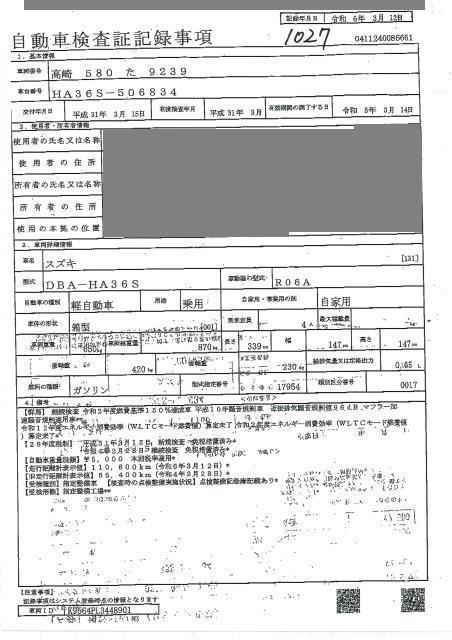 記録年月日 令和 6年 3月 13日
自動車検査証記録事項
1027
0411240086661
1. 基本情報
車両番号 高崎 580 た 9239
車台番号 HA36S-506834
交付年月日 平成 31年 3月 15日 初度検査年月 平成 31年 3月 有効期間の満了する日 令和 8年 3月 14日
2. 使用者・所有者情報
使用者の氏名又は名称
使用者の住所
所有者の氏名又は名称
所有者の住所
使用の本拠の位置
3. 車両詳細情報
車名 スズキ [131]
型式 DBA-HA36S 原動機の型式 R06A
自動車の種別 軽自動車 用途 乗用 自家用・事業用の別 自家用
車体の形状 箱型 [001] 乗車定員 4人 最大積載量
車両重量 650kg 車両総重量 870kg 長さ 339cm 幅 147cm 高さ 147cm
前軸重 420kg 後軸重 230kg 総排気量又は定格出力 0.65L
燃料の種類 ガソリン 型式指定番号 17954 類別区分番号 0017
4. 備考
【群馬】 継続検査 令和2年度燃費基準150%達成車 平成10年騒音規制車 近接排気騒音規制値96dB,マフラー加
速騒音規制適用車*
令和12年度エネルギー消費効率(WLTCモード燃費値)算定未了 令和2年度エネルギー消費効率(WLTCモード燃費値
)算定未了*
【29年度税制】 平成31年3月15日 新規検査 免税措置済み*
【自動車重量税額】 ¥5,000 本則税率適用*
【走行距離計表示値】 110,600km (令和6年3月12日)*
【旧走行距離計表示値】 65,400km (令和4年2月28日)*
【受検種別】指定整備車 【検査時の点検整備実施状況】点検整備記録簿記載あり*
【受検形態】指定整備工場**
【注意事項】
記録事項はシステム登録時点の情報となります
車両ID K9564PL3448901